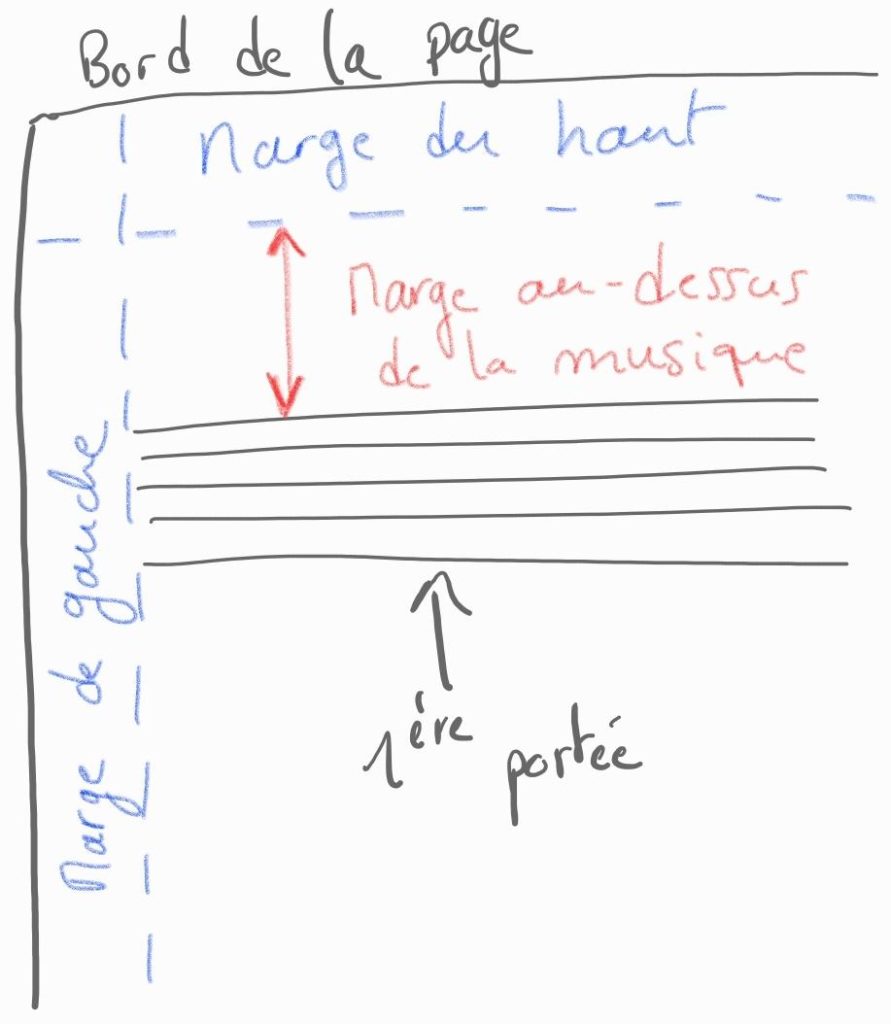 Bord de la page
Marge du haut
Marge au-dessus
de la musique
Marge de gauche
1ère portée